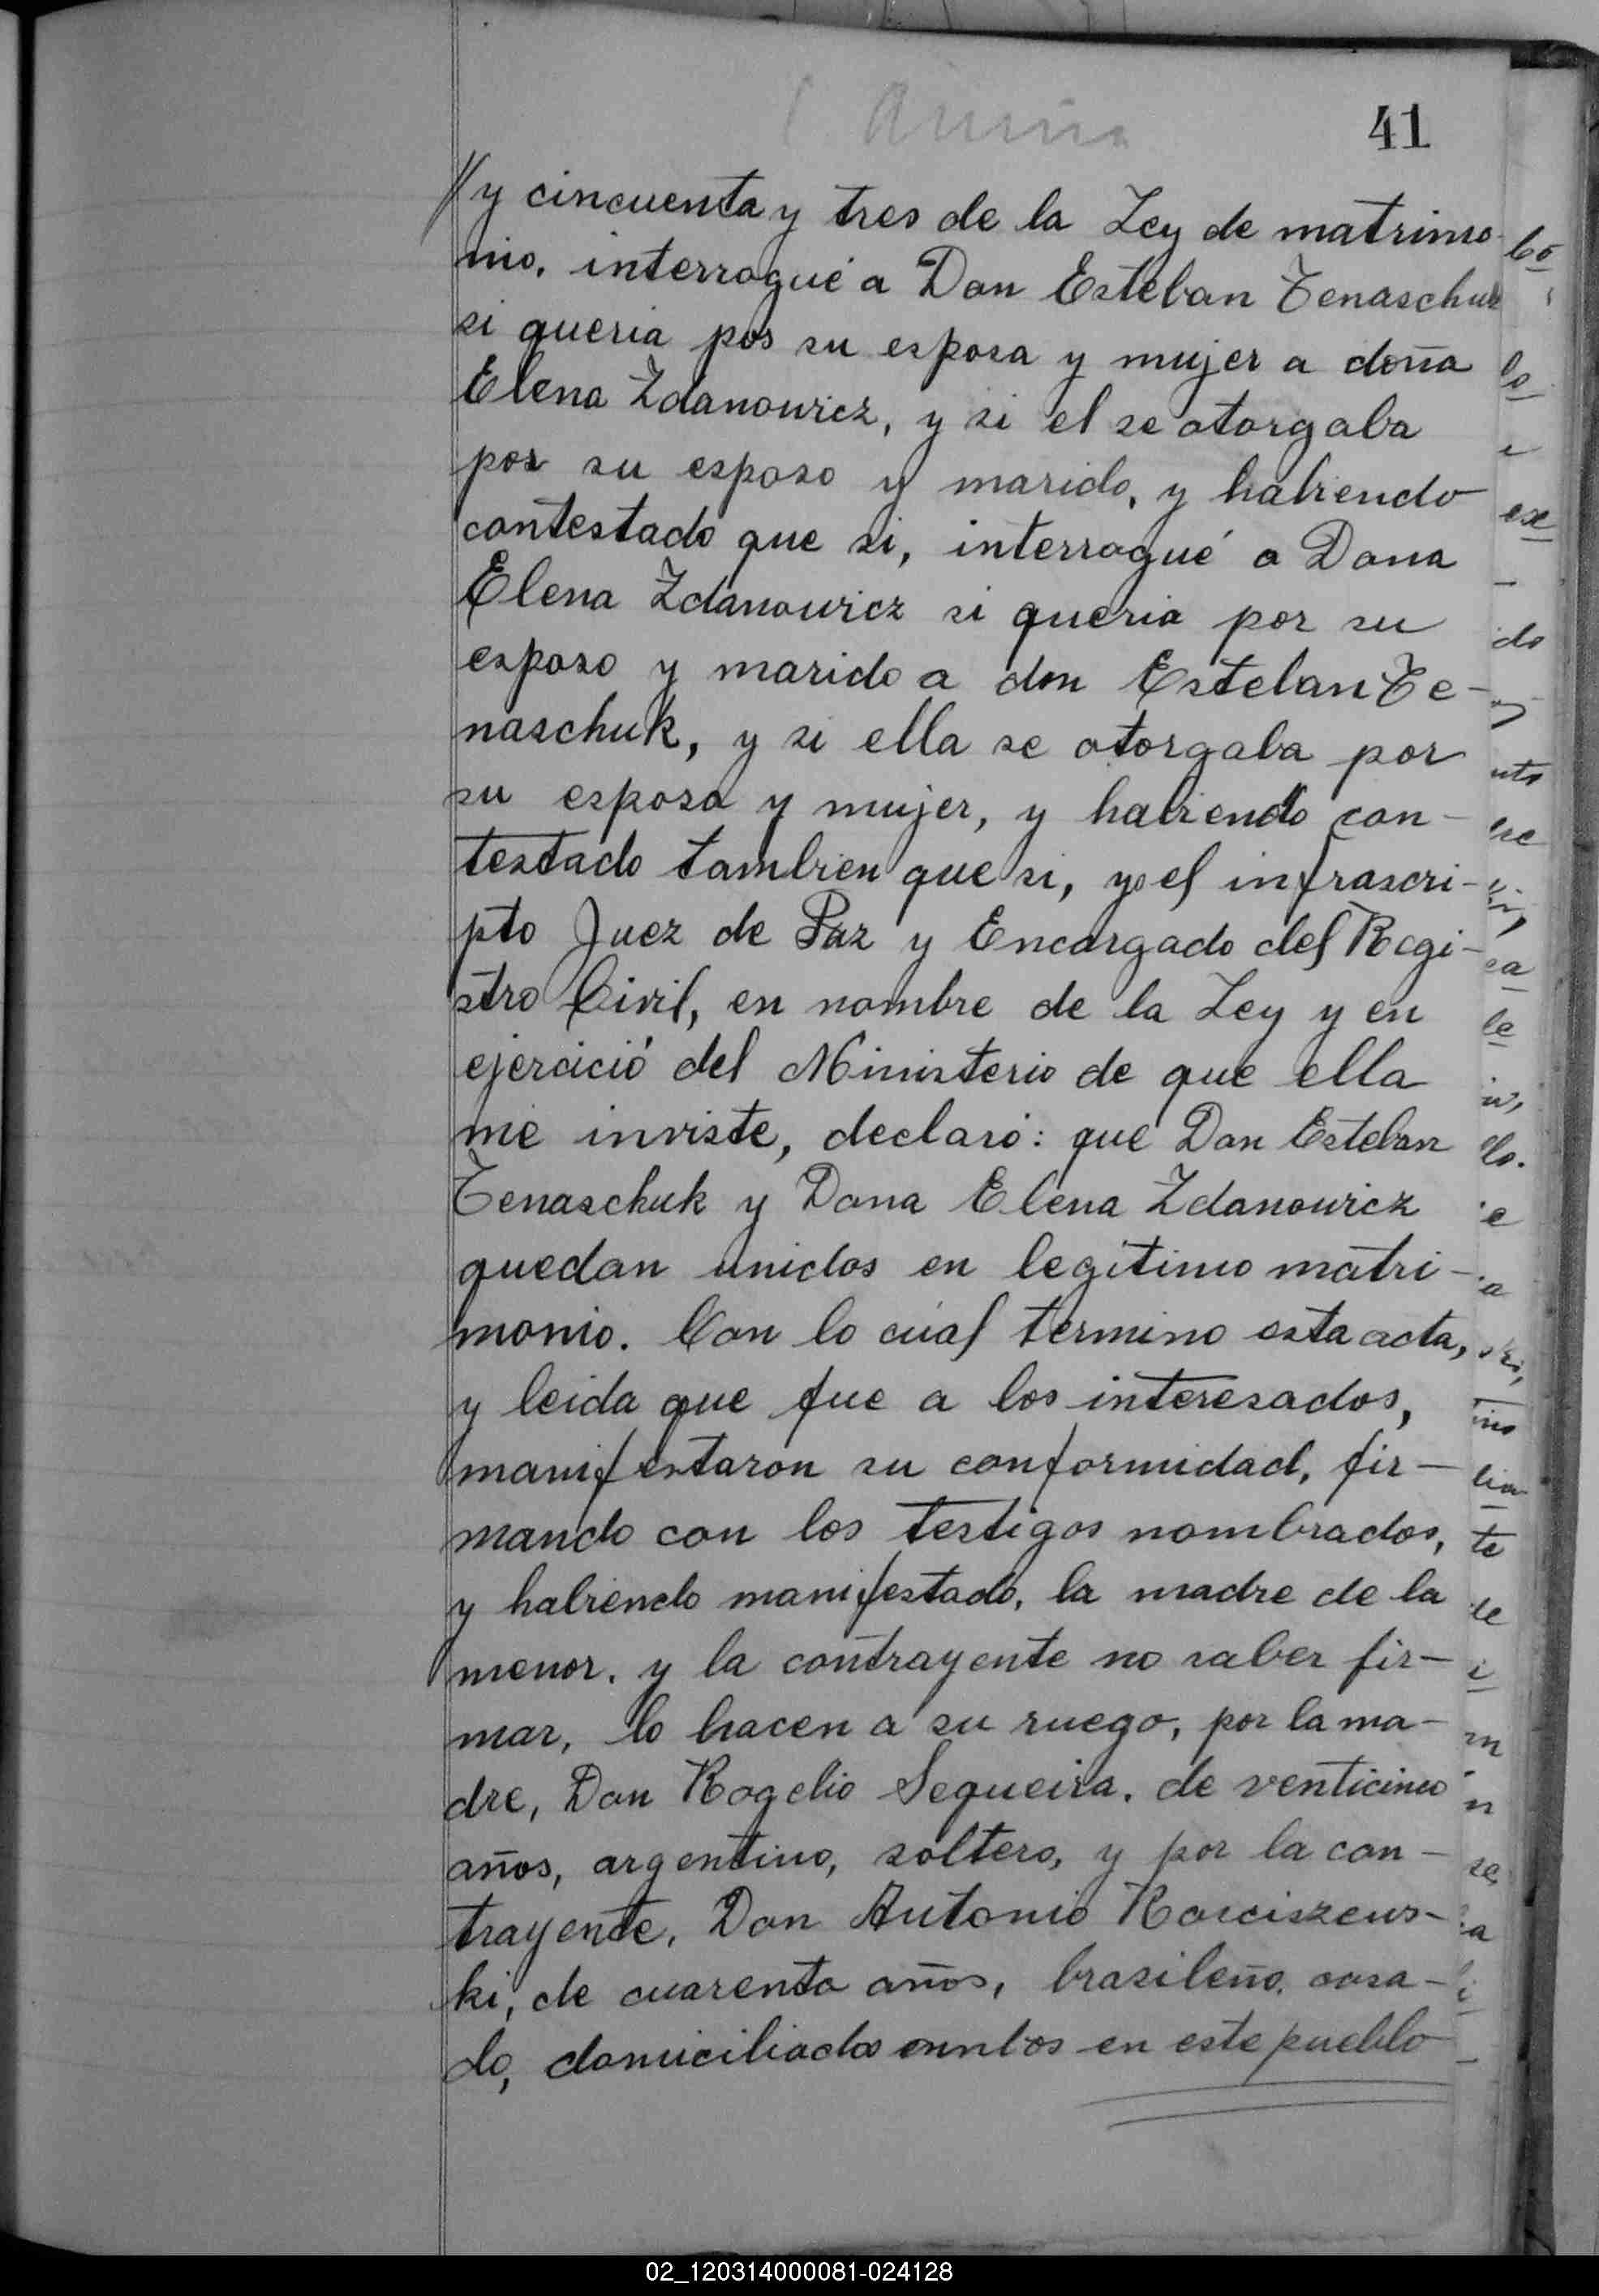 41
// y cincuenta y tres de la Ley de matrimo-
nio. interrogué a Don Esteban Tenaschuk
si queria por su esposa y mujer a doña
Elena Zdanowicz, y si el se otorgaba
por su esposo y marido, y habiendo
contestado que si, interrogué a Dona
Elena Zdanowicz si queria por su
esposo y marido a don Esteban Te-
naschuk, y si ella se otorgaba por
su esposa y mujer, y habiendo con-
testado tambien que si, yo el infrascri-
pto Juez de Paz y Encargado del Regi-
stro Civil, en nombre de la Ley y en
ejercició del Ministerio de que ella
me inviste, declaró: que Don Esteban
Tenaschuk y Dona Elena Zdanowicz
quedan unidos en legitimo matri-
monio. Con lo cual termino esta acta,
y leida que fue a los interesados,
manifestaron su conformidad, fir-
mando con los testigos nombrados,
y habiendo manifestado, la madre de la
menor. y la contrayente no saber fir-
mar, lo hacen a su ruego, por la ma-
dre, Don Rogelio Sequeira. de venticinco
años, argentino, soltero, y por la con-
trayente, Don Antonio
ki, de cuarenta años, brasileño. casa-
do, domiciliados ambos en este pueblo
02_120314000081-024128